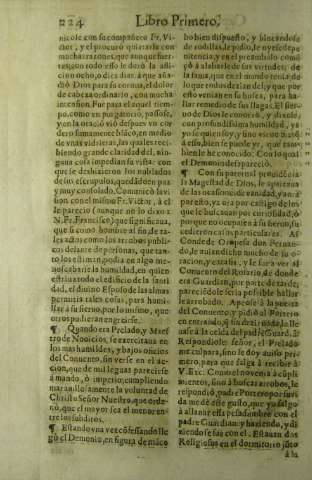 224 Libro Primero,
nicole con su compañero Fr. Vi-
ctor, y el procuró quietarse con
muchas razones, que aunque fuer-
tes, no todo esso le deró la afli-
cion ocho, o diez dias, à que aña-
dió Dios para su corona, el dolor
de cabeza ordinario, con mucha
intension. Fue para el aquel tiem-
po, como un purgatorio, passóse,
y en la oració vió despues vn cor-
dero sumamente bláco, en medio
de vnas vidrieras, las quales reci-
biendo grande claridad del, nin-
guna cosa impedian su vista: con
que se deshizieron los nublados
de sus escrupulos, quedádo en paz
y muy consolado. Comunicó la vi-
sion con el mismo Fr. Victor, à el
le pareció (aunque no lo dixo à
N. Fr. Francisco) que significauan,
que si como hombre al fin, de ta-
les actos como los arrobos publi-
cos delante de personas, que tan-
to los estiman, podia en algo me-
noscabarse la humildad, en quien
estriua todo el edificio de la santi-
dad, el diuino Esposo de las almas
permitia tales cosas, para humi-
llar à su sieruo, por lo mismo, que
otros pudieran engreirse.
¶ Quando era Prelado, y Maes-
tro de Nouicios, se exercitaua en
los mas humildes, y baxos oficios
del Conuento, sin verse en el ac-
cion, que de mil leguas pareciesse
à mando, ò imperio, cumpliendo
mara uillosamente la voluntad de
Christo Señor Nuestro, que orde-
nó, que el mayor sea el menor en-
tre los subditos.
¶ Estando vna vez cófessando lle-
gó el Demonio, en figura de máce-
bo bien dispuesto, y hincandose
de rodillas, le pidió, le oyesse de pe-
nitencia, y en des
ó à alabarle de las virtudes; de
la fama, que en el mundo tenia, de
lo que todos dezian del, y que por
esso venian en su busca, para ha-
llar remedio de sus llagas. El sier-
uo de Dios le conoció, y dixole,
con profundissima humildad, ya
yo sé quien soy, y sino viene mas q̃
à esso, bien se puede yr, que tam-
bien le he conocido. Con lo qual
el Demonio desapareció.
¶ Con su parecer
la Magestad de Dios, le apartaua
de las ocasiones de vanidad, y à mi
parecer, ya era por castigo de los
que le buscauan por curiosidad, ò
porque no ocupassen à su sieruo, su-
cedieron casos particulares. Al
Conde de Oropesa don Fernan-
do, le auian dicho mucho de su o-
racion, y extasis, y fue à ver al
Conuento del Rosario, de donde
era Guardian, por parte de tarde,
pareciédole seria possible hallar-
le arrobado. Apeose à la puerta
del Conuento, y pidió al Portero
en entrando, q̃ sin dezir nada, le lle-
uasse à la celda del padre Guard. â
Respondiole señor, el Prelado
me culpara, sino le doy auiso pri-
mero, para que salga à recibir à
V. Exc. Como el no venia à cúpli-
mientos, sino à buscar arrobos, le
respondió, padre Portero por su vi-
da me dé este gusto, que yo salgo
à allanar essa pesadumbre con el
padre Guardian y haziendolo, y di-
ziendo se fue con el. Estauan dos
Religiosos en el dormitorio jůto
à la